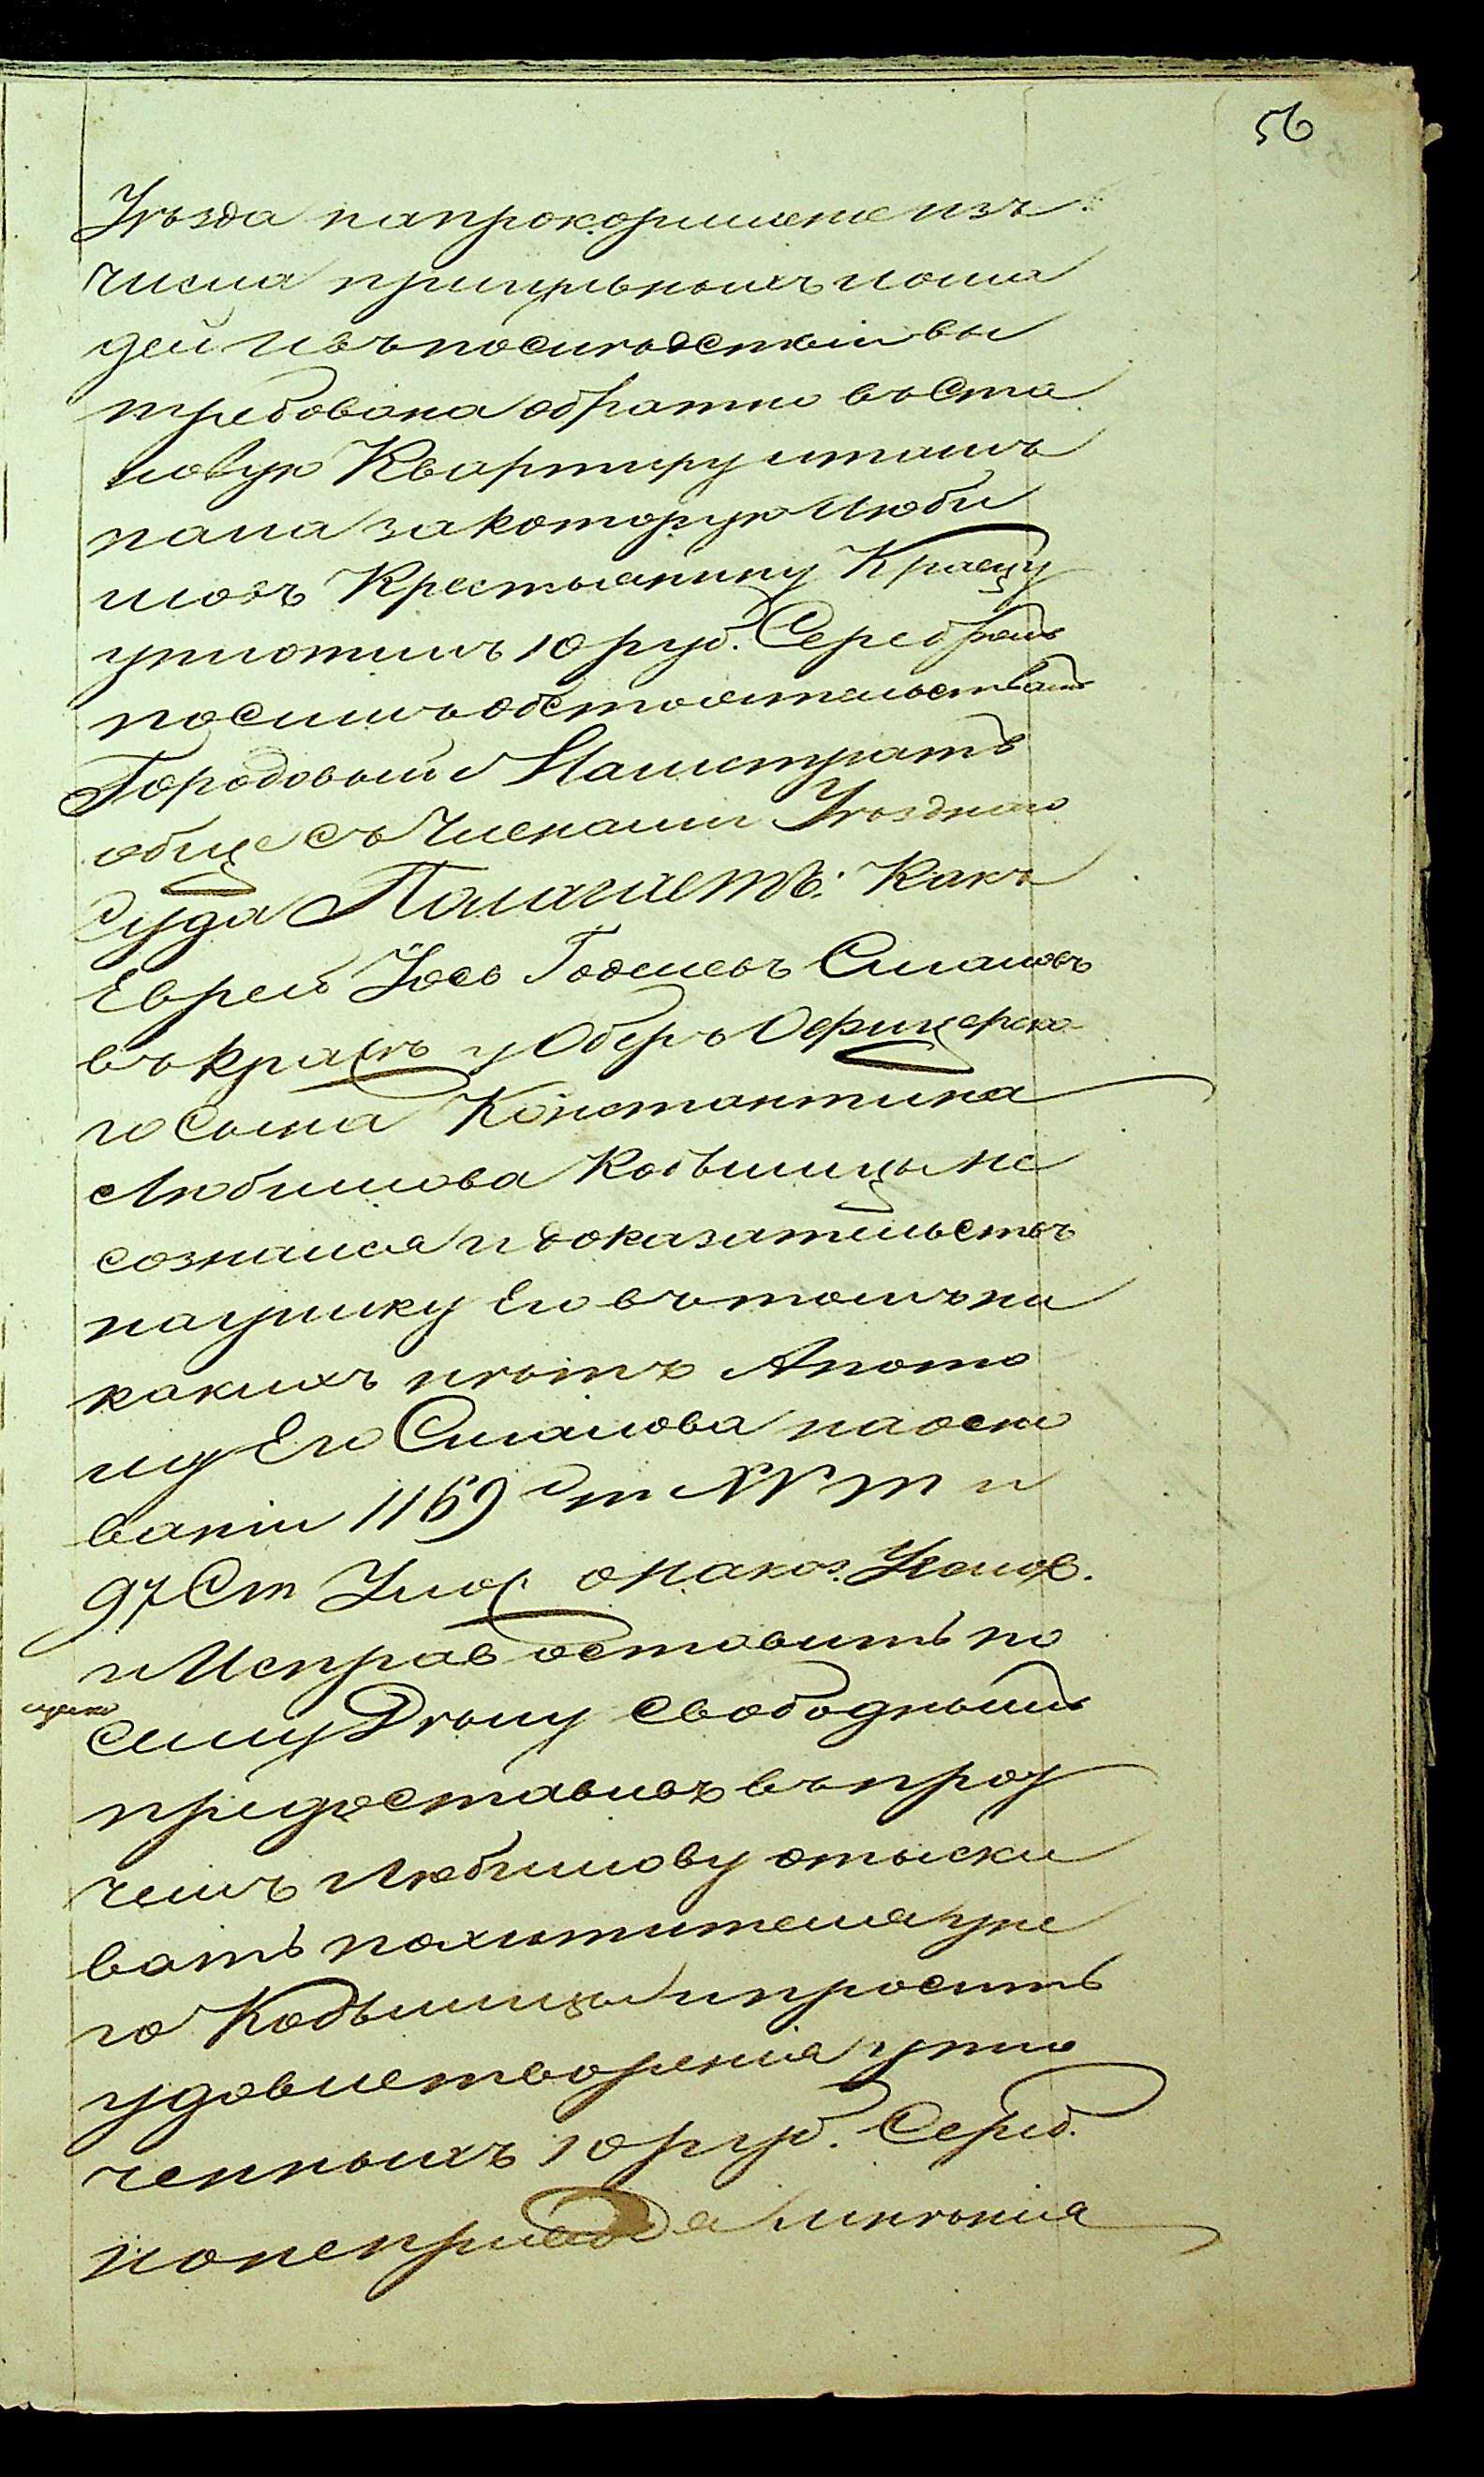 56
Уѣзда на прокормленіе изъ
числа пригульныхъ лоша
дей и въ послѣдствіи вы
требована обратно въ Ста
новую Квартиру и тамъ
пала за которую Люби
мовъ Крестьянину Краецу
уплотилъ 10 руб. Серебромъ
по симъ обстоятельствамъ
Городовый Магистратъ
обще съ Членами Уѣзднаго
Суда Полагаетъ: Какъ
Еврей Іось Гошевъ Смаловъ
въ кражѣ у Оберъ Офицерска
го Сына Константина
Любимова Кобылицы не
сознался и доказательствъ
на улику Его въ томъ ни
какихъ нѣтъ А потому
Его Смалова на осно
ваніи 1169 ст XV т и
97 Ст Улож о наказ. Уголов.
и Исправ оставить по
сему Дѣлу свободнымъ
предоставивъ въ про
чемъ Любимову отыски
вать похитителя у не
го Кобылицы и просить
удовлетворенія упло
ченныхъ 10 руб. Сереб.
но не приводя мнѣнія